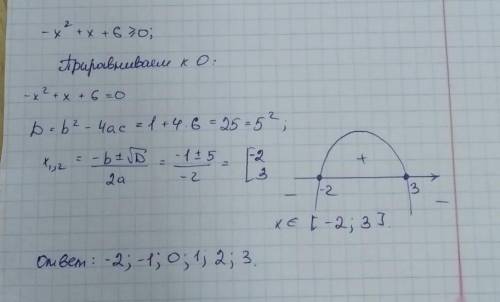 -x² + x + 6 ≥ 0;
Приравниваем к 0.
-x² + x + 6 = 0
D = b² - 4ac = 1 + 4·6 = 25 = 5²;
x₁,₂ = (-b ± √D)/2a = (-1 ± 5)/-2 = [-2 3
+
− -2 3 −
x ∈ [-2; 3].
Ответ: -2; -1; 0; 1; 2; 3.